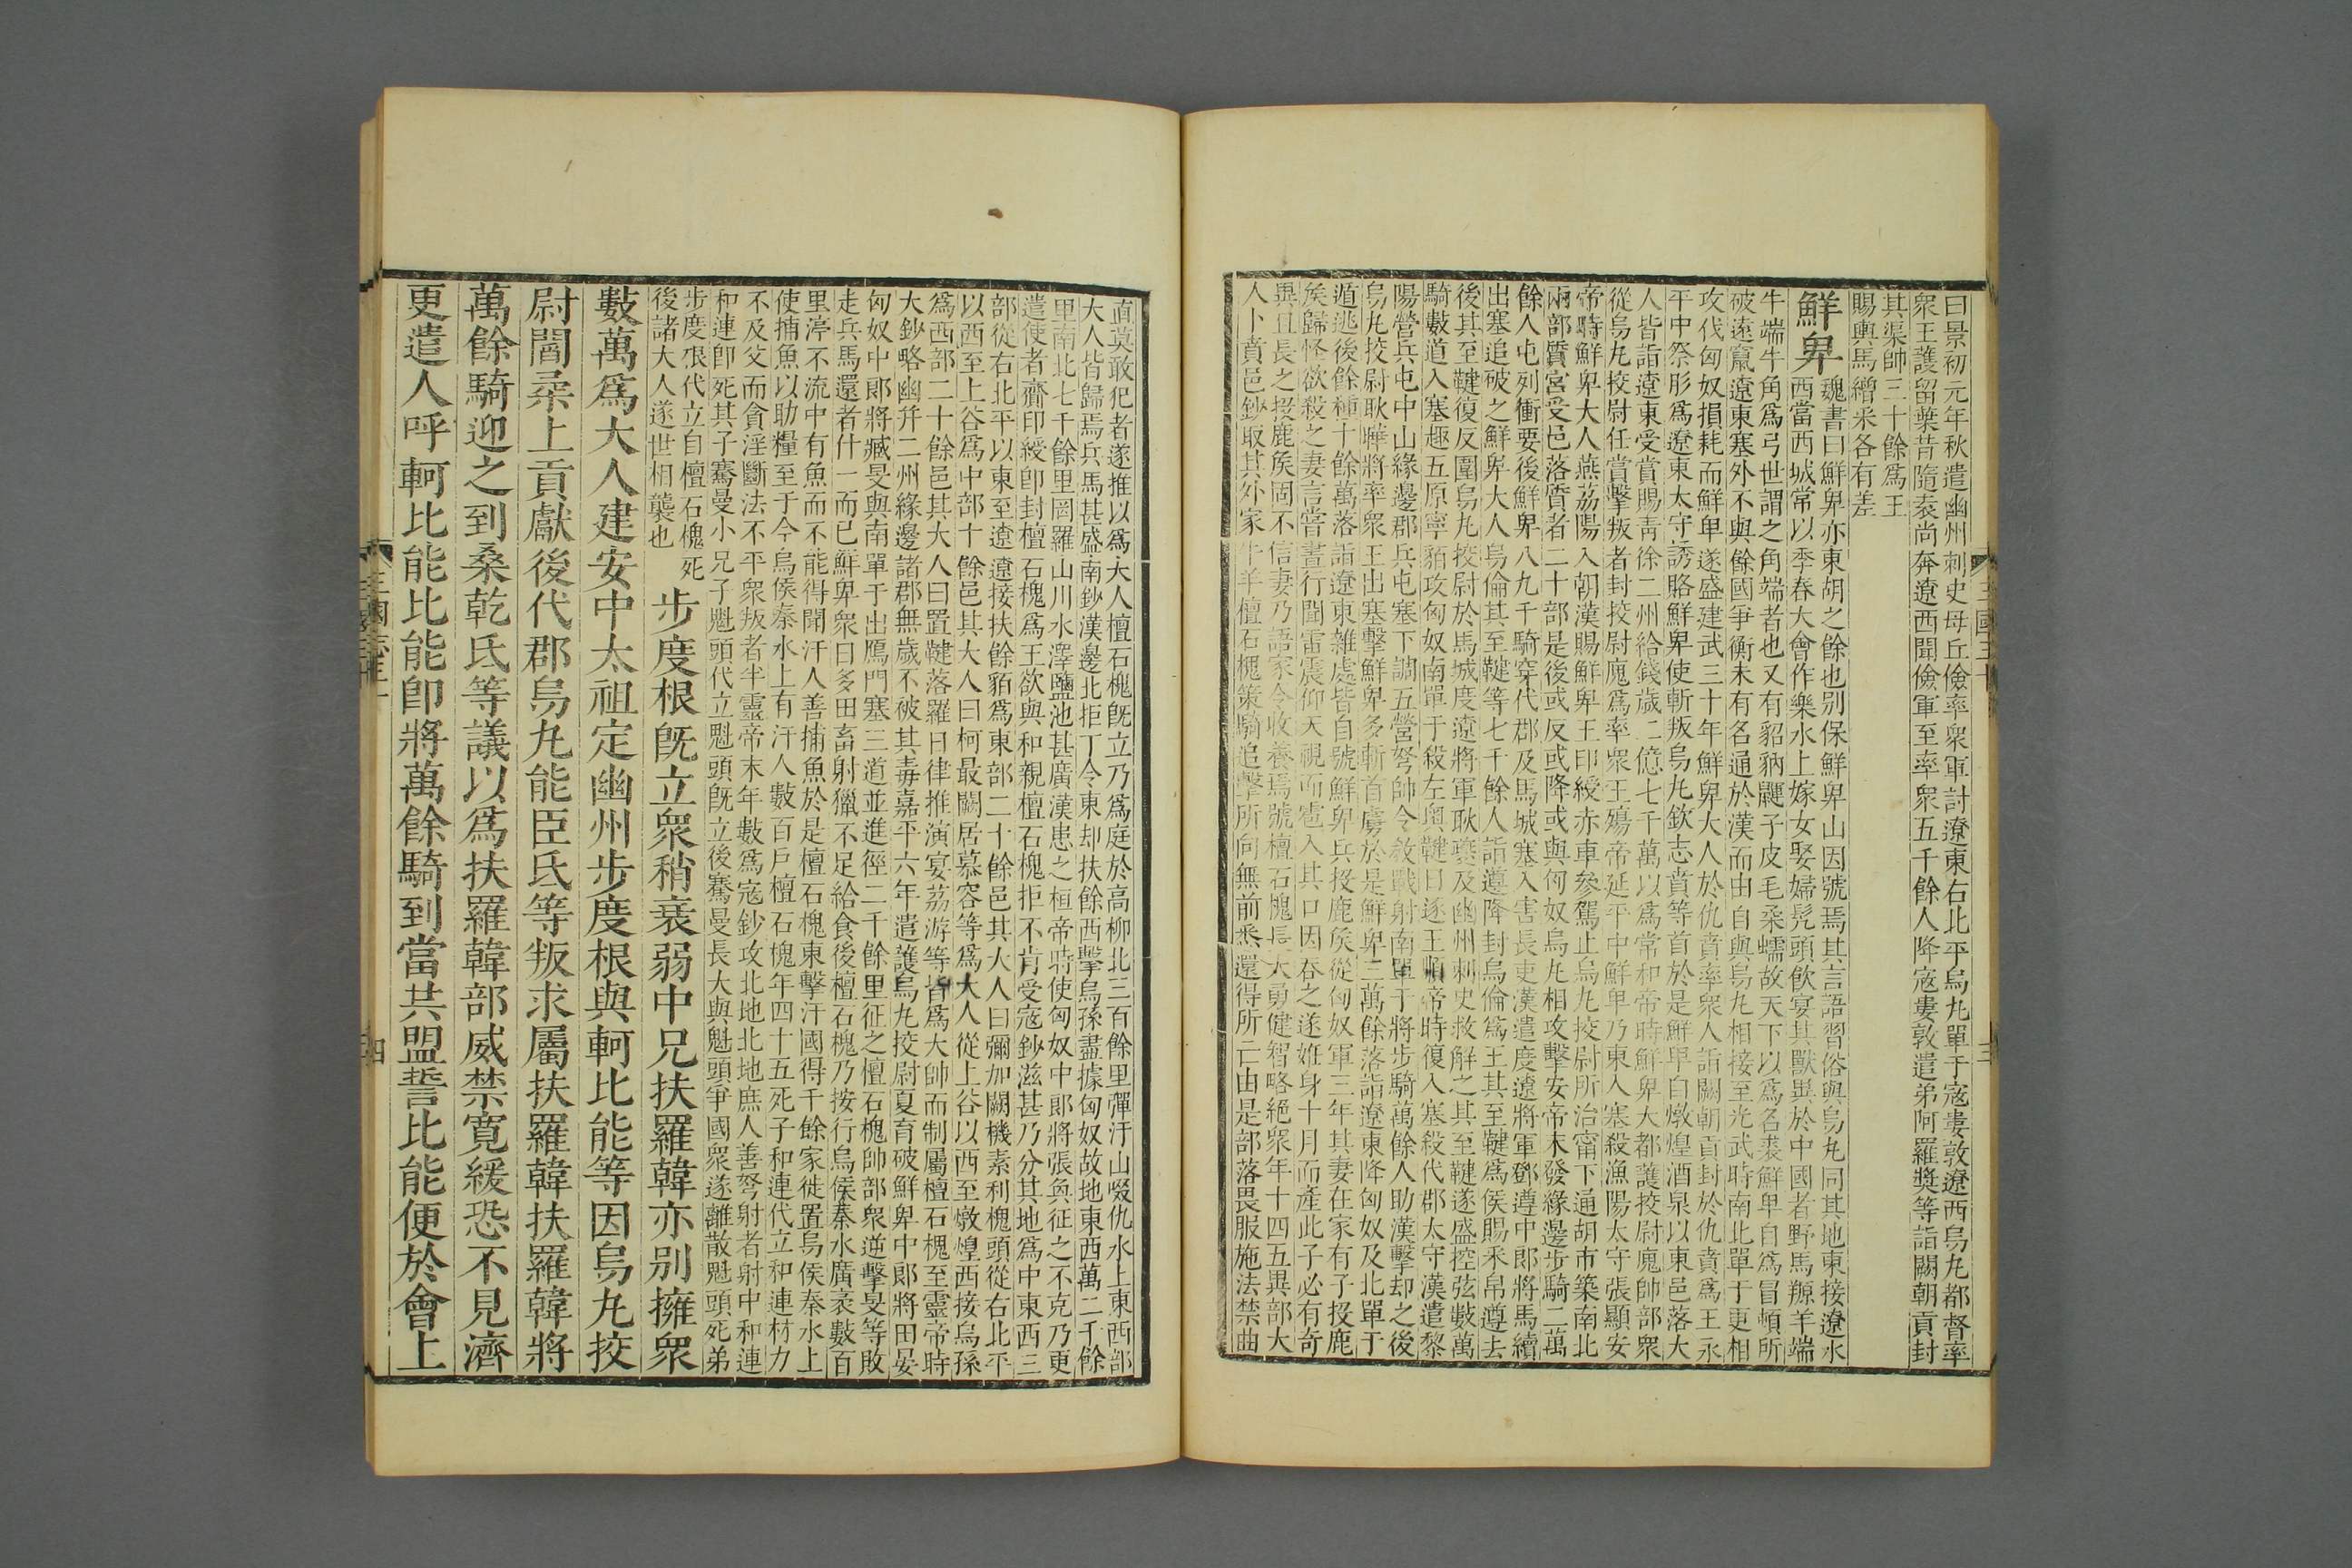 曰景初元年秋遣幽州刺史毋丘儉率衆軍討遼東右北平烏丸單于寇婁敦遼西烏丸都督率
衆王護留葉昔隨袁尚奔遼西聞儉軍至率衆五千餘人降寇婁敦遣弟阿羅獎等詣闕朝貢封
其渠帥三十餘爲王
賜輿馬繒采各有差
鮮卑
魏書曰鮮卑亦東胡之餘也别保鮮卑山因號焉其言語習俗與烏丸同其地東接遼水
西當西城常以季春大會作樂水上嫁女娶婦髡頭飲宴其獸異於中國者野馬羱羊端
牛端牛角爲弓世謂之角端者也又有貂豽鼲子皮毛柔蠕故天下以爲名裘鮮卑自爲冒頓所
破遠竄遼東塞外不與餘國爭衡未有名通於漢而由自與烏丸相接至光武時南北單于更相
攻伐匈奴損耗而鮮卑遂盛建武三十年鮮卑大人於仇賁率衆人詣闕朝貢封於仇賁爲王永
平中祭肜爲遼東太守誘賂鮮卑使斬叛烏丸欽志賁等首於是鮮卑自燉煌酒泉以東邑落大
人皆詣遼東受賞賜靑徐二州給錢歲二億七千萬以爲常和帝時鮮卑大都護挍尉廆帥部衆
從烏丸挍尉任嘗擊叛者封挍尉廆爲率衆王殤帝延平中鮮卑乃東入塞殺漁陽太守張顯安
帝時鮮卑大人燕荔陽入朝漢賜鮮卑王印綬赤車參駕止烏丸挍尉所治甯下通胡市築南北
兩部質宮受邑落質者二十部是後或反或降或與匈奴烏丸相攻擊安帝末發緣邊步騎二萬
餘人屯列衝要後鮮卑八九千騎穿代郡及馬城塞入害長吏漢遣度遼將軍鄧遵中郎將馬續
出塞追破之鮮卑大人烏倫其至鞬等七千餘人詣遵降封烏倫爲王其至鞬爲侯賜采帛遵去
後其至鞬復反圍烏丸挍尉於馬城度遼將軍耿夔及幽州刺史救解之其至鞬遂盛控弦數萬
騎數道入塞趣五原寧貊攻匈奴南單于殺左奧鞬日逐王順帝時復入塞殺代郡太守漢遣黎
陽營兵屯中山緣邊郡兵屯塞下調五營弩帥令敎戰射南單于將步騎萬餘人助漢擊却之後
烏丸挍尉耿曄將率衆王出塞擊鮮卑多斬首虜於是鮮卑三萬餘落詣遼東降匈奴及北單于
遁逃後餘種十餘萬落詣遼東雜處皆自號鮮卑兵投鹿矦從匈奴軍三年其妻在家有子投鹿
矦歸怪欲殺之妻言嘗晝行聞雷震仰天視而雹入其口因吞之遂姙身十月而產此子必有奇
異且長之投鹿矦固不信妻乃語家令收養焉號檀石槐長大勇健智略絕衆年十四五異部大
人卜賁邑鈔取其外家牛羊檀石槐策騎追擊所向無前悉還得所亡由是部落畏服施法禁曲
直莫敢犯者遂推以爲大人檀石槐旣立乃爲庭於高柳北三百餘里彈汗山啜仇水上東西部
大人皆歸焉兵馬甚盛南鈔漢邊北拒丁令東却扶餘西擊烏孫盡據匈奴故地東西萬二千餘
里南北七千餘里罔羅山川水澤鹽池甚廣漢患之桓帝時使匈奴中郎將張奐征之不克乃更
遣使者齎印綬卽封檀石槐爲王欲與和親檀石槐拒不肯受寇鈔滋甚乃分其地爲中東西三
部從右北平以東至遼遼接扶餘貊爲東部二十餘邑其大人曰彌加闕機素利槐頭從右北平
以西至上谷爲中部十餘邑其大人曰柯最闕居慕容等爲大人從上谷以西至燉煌西接烏孫
爲西部二十餘邑其大人曰置鞬落羅日律推演宴荔游等皆爲大帥而制屬檀石槐至靈帝時
大鈔略幽幷二州緣邊諸郡無歲不被其毒嘉平六年遣護烏丸挍尉夏育破鮮卑中郎將田晏
匈奴中郎將臧旻與南單于出鴈門塞三道並進徑二千餘里征之檀石槐帥部衆逆擊旻等敗
走兵馬還者什一而已鮮卑衆日多田畜射獵不足給食後檀石槐乃按行烏侯秦水廣袤數百
里渟不流中有魚而不能得聞汗人善捕魚於是檀石槐東擊汗國得千餘家徙置烏侯秦水上
使捕魚以助糧至于今烏侯秦水上有汗人數百戶檀石槐年四十五死子和連代立和連材力
不及父而貪淫斷法不平衆叛者半靈帝末年數爲寇鈔攻北地北地庶人善弩射者射中和連
和連卽死其子騫曼小兄子魁頭代立魁頭旣立後騫曼長大與魁頭爭國衆遂離散魁頭死弟
步度根代立自檀石槐死
後諸大人遂世相襲也
步度根旣立衆稍衰弱中兄扶羅韓亦别擁衆
數萬爲大人建安中太祖定幽州步度根與軻比能等因烏丸挍
尉閻柔上貢獻後代郡烏丸能臣氐等叛求屬扶羅韓扶羅韓將
萬餘騎迎之到桑乾氐等議以爲扶羅韓部威禁寬緩恐不見濟
更遣人呼軻比能比能卽將萬餘騎到當共盟誓比能便於會上
四